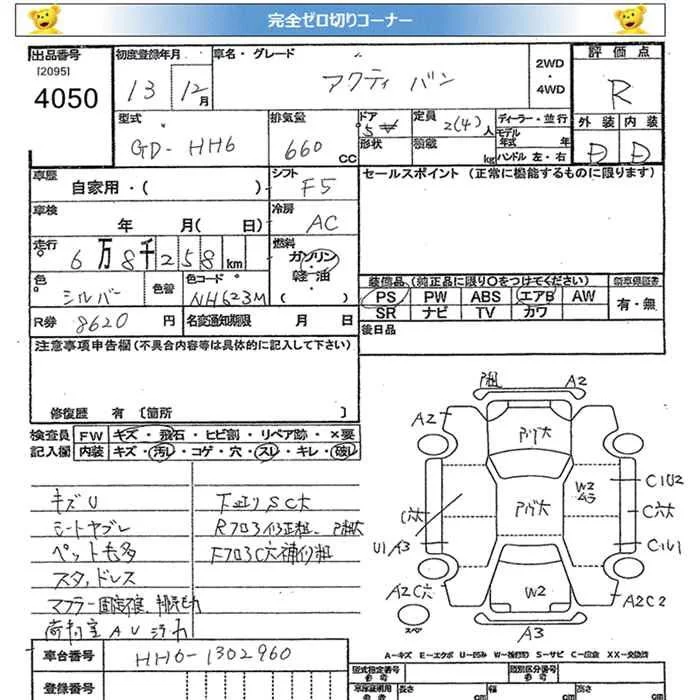 完全ゼロ切りコーナー
出品番号
[2095]
4050
初度登録年月
13 12月
車名・グレード
アクティ バン
2WD
・
4WD
評価点
R
外装 内装
D D
型式
GD-HH6
排気量
660 CC
ドア
5
形状
定員
2(4)人
積載
kg
ディーラー・並行
モデル年式 年
ハンドル 左・右
車歴
自家用・( )
シフト
F5
セールスポイント (正常に機能するものに限ります)
車検
年 月( 日)
冷房
AC
走行
6万8千258km
燃料
ガソリン・
軽油
( ・ )
色
シルバー
色替
色コード
NH623M
装備品 (純正品に限り○をつけてください)
PS PW ABS エアB AW
SR ナビ TV カワ
新車保証書
有・無
R券 8620 円
名変通知期限 月 日
後日品
注意事項申告欄(不具合内容等は具体的に記入して下さい)
修復歴 有 [箇所 ]
検査員
記入欄
FW キズ・飛石・ヒビ割・リペア跡・×要
内装 キズ・汚れ・コゲ・穴・スレ・キレ・破れ
キズU
シートヤブレ
ペットも多
スタッドレス
下廻りSC大
Rフロア修正粗、P粗大
FフロアC穴補修粗
P粗 A2
A2
W2
ムラ
C1U2
C穴大
C1U1
C穴大
U1 A3
W2
A2C穴
スペア
A2C2
A3
A-キズ E-エクボ U-凹み W-補修跡 S-サビ C-腐食 XX-交換済
車台番号
HH6-1302960
登録番号
型式指定番号
類別区分番号
長さ
cm
幅
cm
高さ
cm